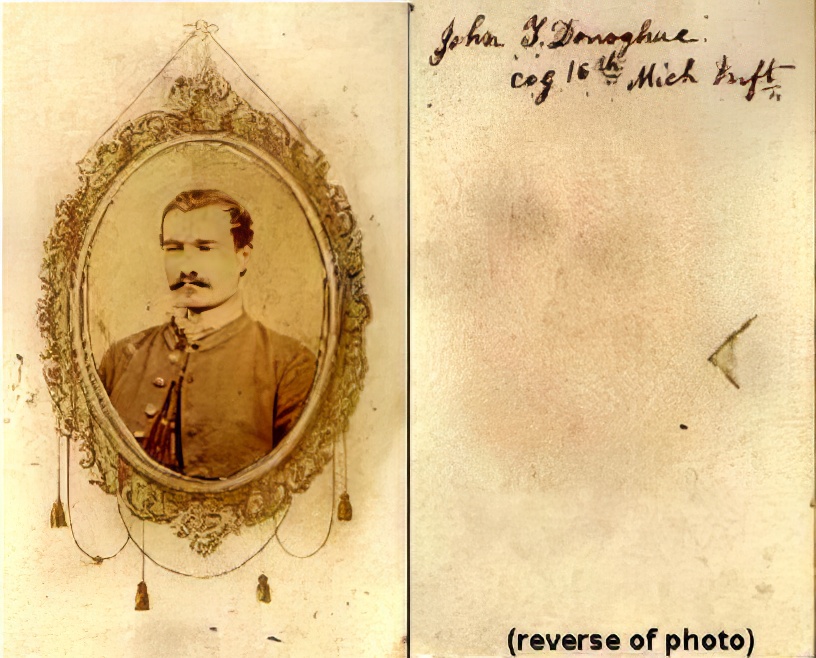 John F. Donoghue.
cog 16th Mich Inft
(reverse of photo)